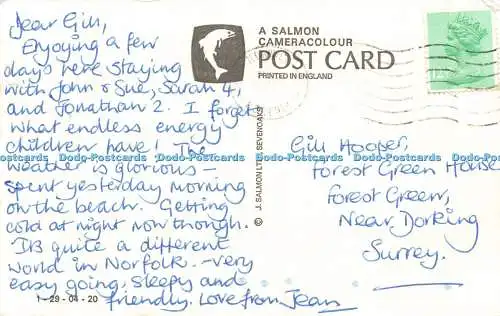 Dear Gill,
Enjoying a few
days here staying
with John & Sue, Sarah 4,
and Jonathan 2. I forget
what endless energy
children have! The
weather is glorious –
spent yesterday morning
on the beach. Getting
cold at night now though.
It's quite a different
world in Norfolk. – very
easy going, sleepy and
friendly. Love from Jean
1-29-04-20
A SALMON
CAMERACOLOUR
POST CARD
PRINTED IN ENGLAND
© J. SALMON LTD., SEVENOAKS
Gill Hooper,
Forest Green House
Forest Green,
Near Dorking
Surrey.
Dodo-Postcards Dodo-Postcards Dodo-Postcards Dodo-Postcards Dodo-Postcards